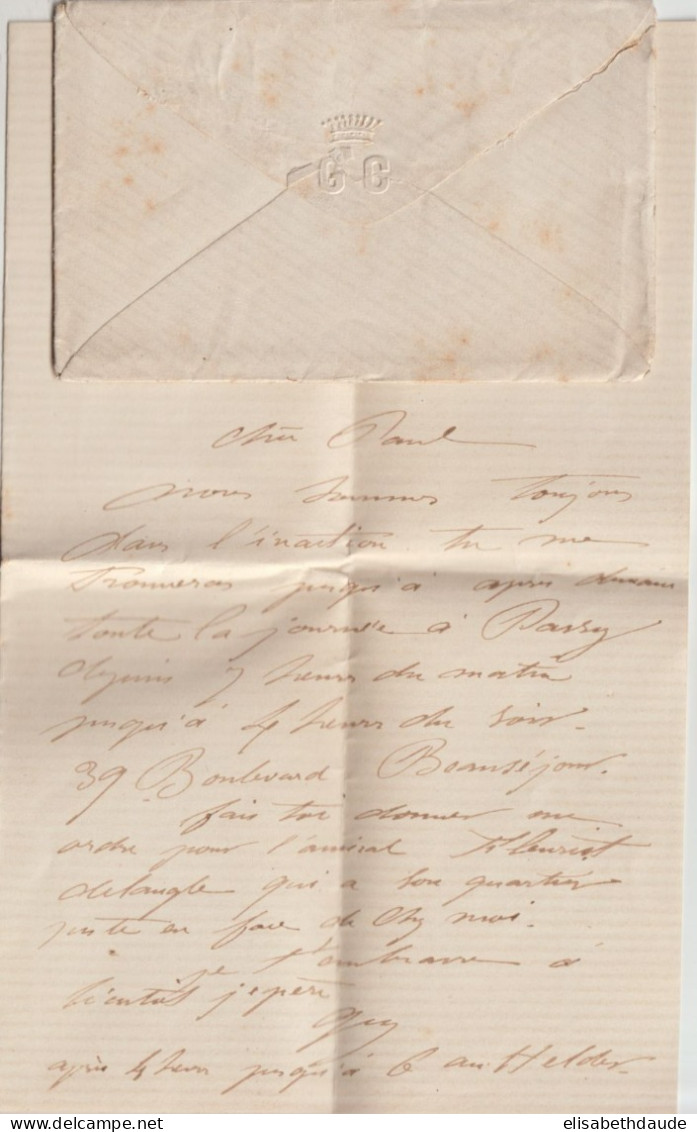 G C
Cher Paul
nous sommes toujours
dans l'inaction. tu me
trouveras jusqu'à après demain
toute la journée à Passy
depuis 7 heures du matin
jusqu'à 4 heures du soir.
39 Boulevard Beauséjour.
fais toi donner un
ordre pour l'amiral Fleuriot
delangle qui a son quartier
juste en face de chez moi.
je t'embrasse à
bientôt j'espère
Guy
après 4 heures jusqu'à 6 au Helder.
elisabethdaude